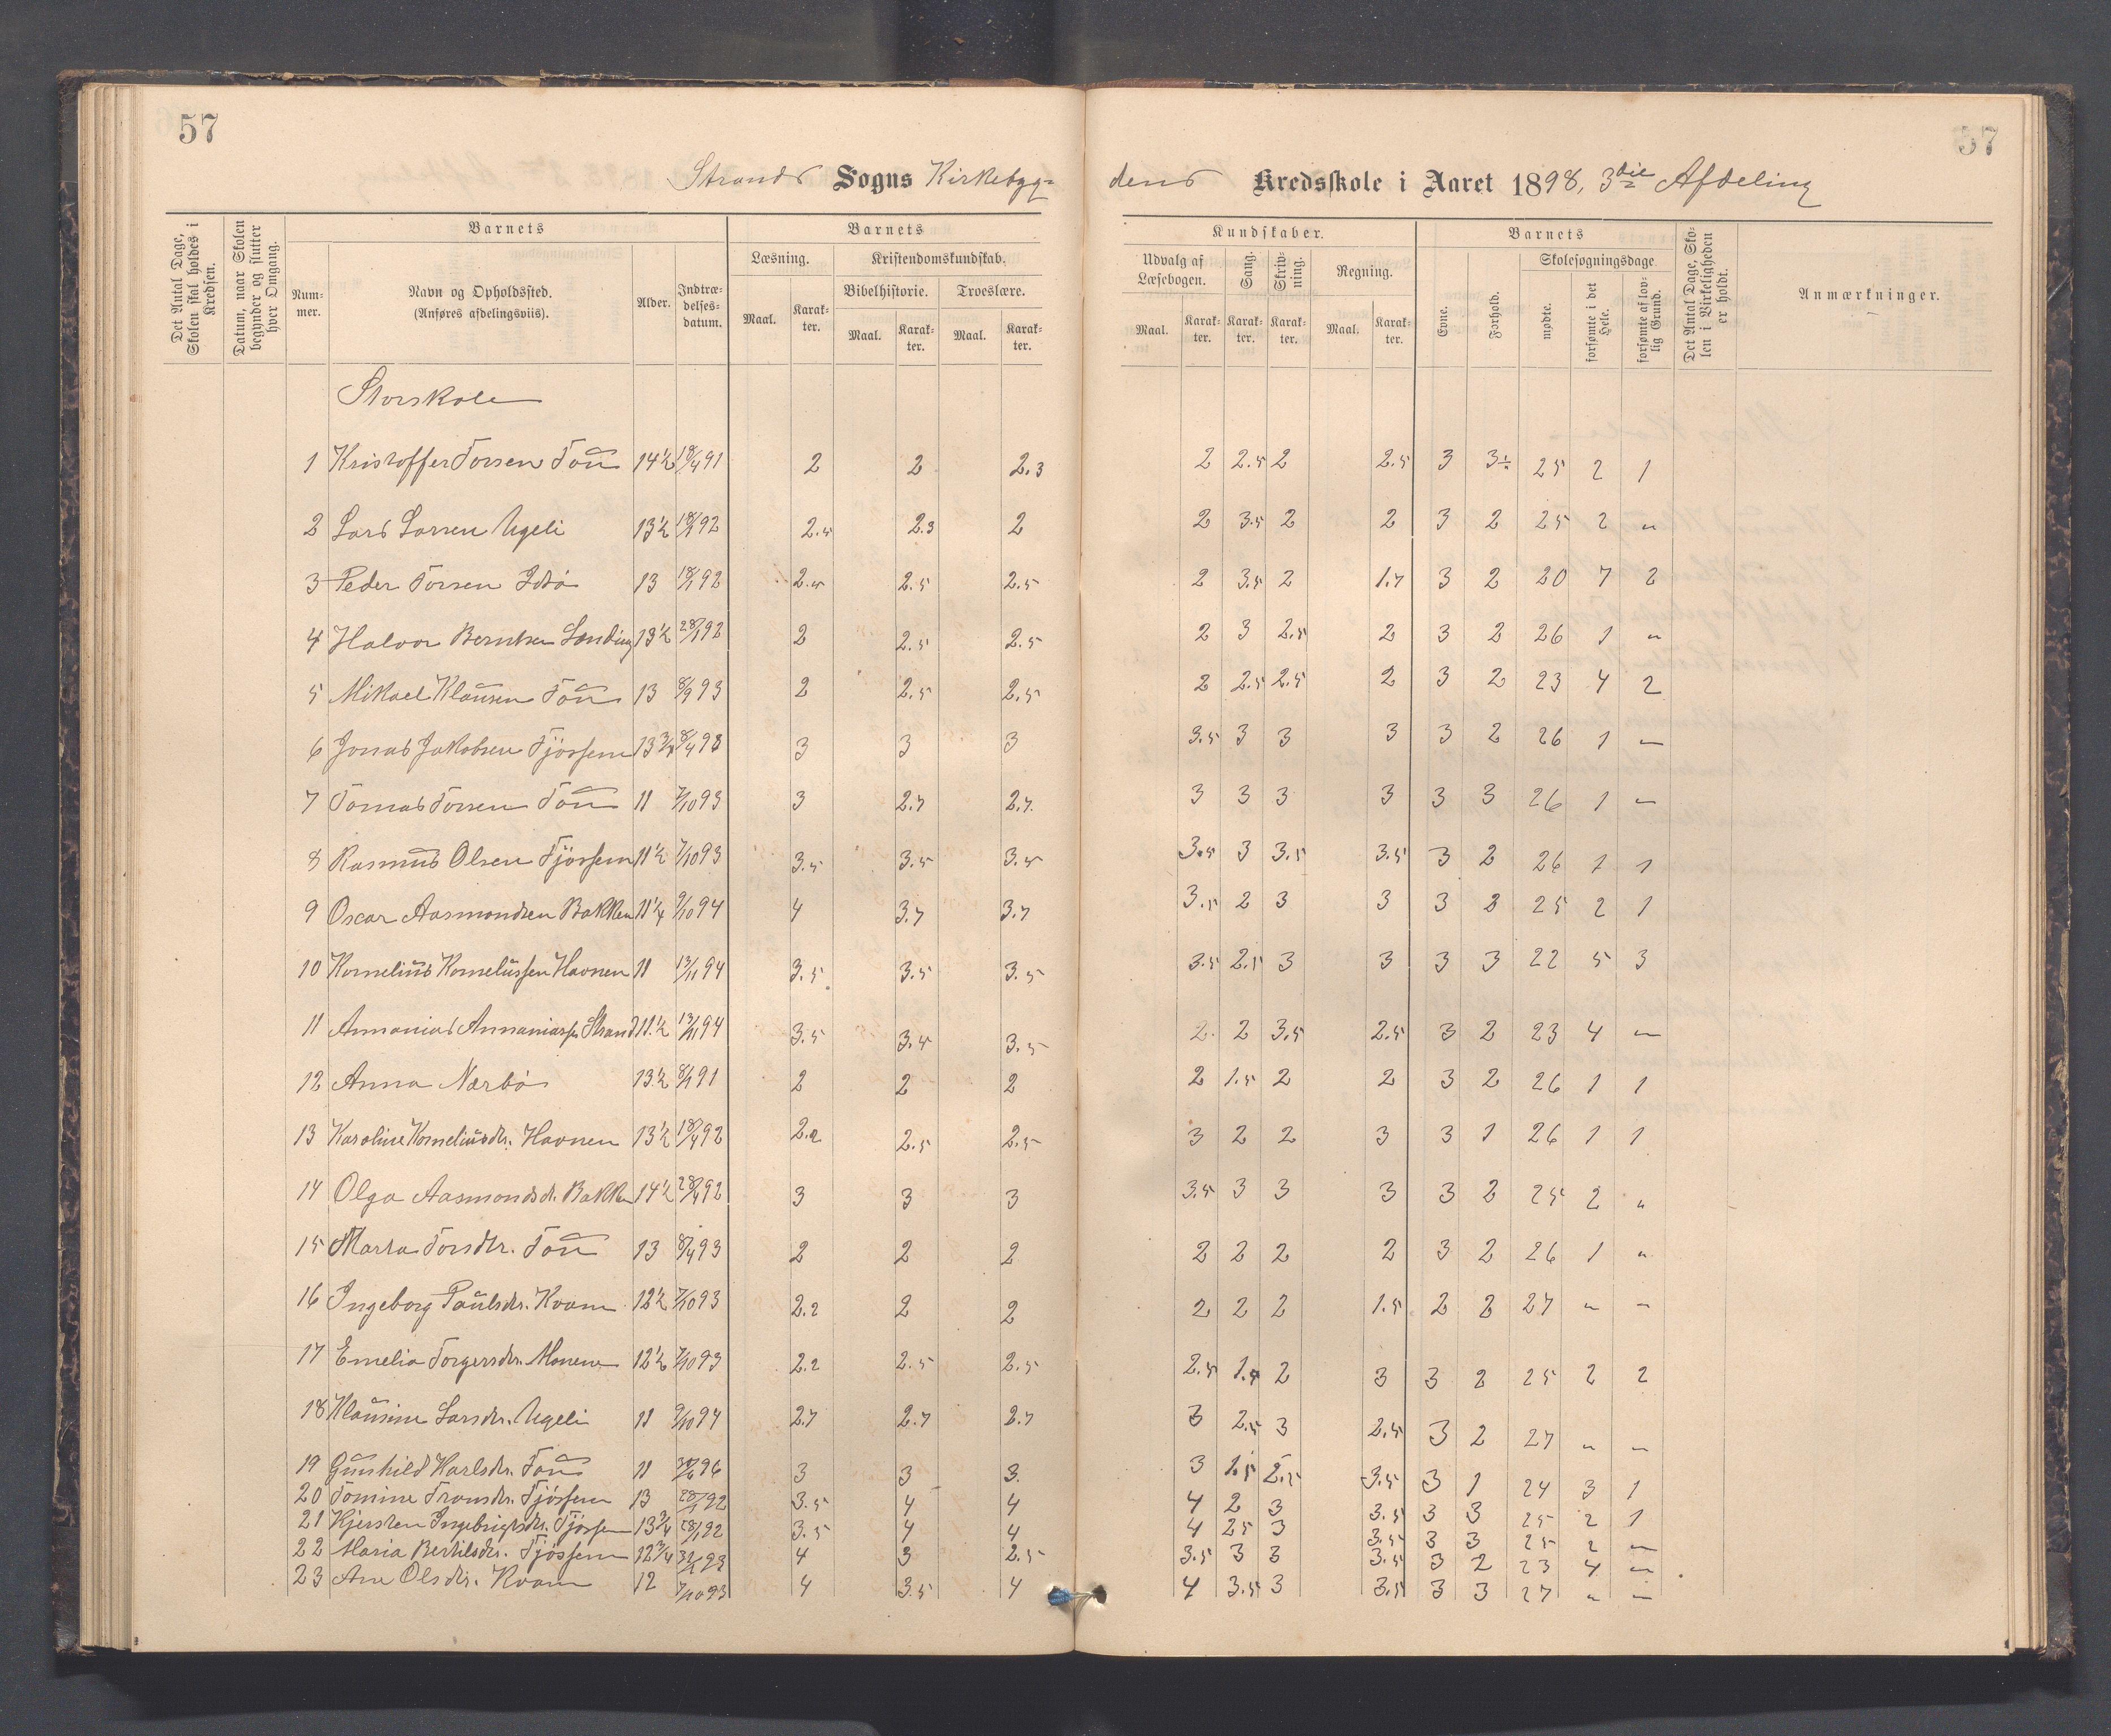 57
57
Strands Sogns Kirkebyg-
dens Kredsskole i Aaret 1898, 3die Afdeling
Det Antal Dage, Skolen skal holdes i Kredsen.
Datum, naar Skolen begynder og slutter hver Omgang.
Barnets
Nummer.
Navn og Opholdssted.
(Anføres afdelingsviis).
Alder.
Indtrædelsesdatum.
Barnets
Læsning.
Maal. Karakter.
Kristendomskundskab.
Bibelhistorie. Troeslære.
Maal. Karakter. Maal. Karakter.
Kundskaber.
Udvalg af Læsebogen.
Maal. Karakter.
Sang.
Karakter.
Skrivning.
Karakter.
Regning.
Maal. Karakter.
Barnets
Evne.
Forhold.
Skolesøgningsdage
mødte.
forsømte i det Hele.
forsømte af lovlig Grund.
Det Antal Dage, Skolen i Virkeligheden er holdt.
Anmærkninger.
Storskole
1 Kristoffer Torsen Tou 14½ 18/4 91 2 2 2.3 2 2.5 2 2.5 3 3÷ 25 2 1
2 Lars Larsen Ugeli 13½ 92 2.5 2.3 2 2 3.5 2 2 3 2 25 2 "
3 Peder Torsen Idsø 13 92 2.5 2.5 2.5 2 3.5 2 1.7 3 2 20 7 2
4 Halvor Berntsen Landing 13½ 28/1 92 2 2.5 2.5 2 3 2.5 2 3 2 26 1 "
5 Mikael Klausen Tou 13 8/9 93 2 2.5 2.5 2 2.5 2.5 2 3 2 23 4 2
6 Jonas Jakobsen Tjøssem 13¾ 8/4 93 3 3 3 3.5 3 3 3 3 2 26 1 "
7 Tomas Torsen Tou 11 7/10 93 3 2.7 2.7 3 3 3 3 3 3 26 1 "
8 Rasmus Olsen Tjøssem 11½ 7/10 93 3.5 3.5 3.5 3.5 3 3.5 3.5 3 2 26 1 1
9 Oscar Aasmondsen Bakken 11¼ 9/10 94 4 3.7 3.7 3.5 2 3 3 3 2 25 2 1
10 Kornelius Korneliussen Havnen 11 13/11 94 3.5 3.5 3.5 3.5 2.5 3 3 3 3 22 5 3
11 Annanias Annaniassen Strand 11½ 13/11 94 3.5 3.5 3.5 2 2 3.5 2.5 3 2 23 4 "
12 Anna Nærbø 13½ 91 2 2 2 2 1.5 2 2 3 2 26 1 1
13 Karoline Korneliusdtr. Havnen 13½ 18/4 92 2.2 2.5 2.5 3 2 2 3 3 1 26 1 1
14 Olga Aasmondsd. Bakken 14½ 28/4 92 3 3 3 3.5 3 3 3 3 2 25 2 "
15 Marta Torsdtr. Tou 13 8/4 93 2 2 2 2 2 2 2 3 2 26 1 "
16 Ingeborg Paulsdtr. Kvam 12½ 7/10 93 2.2 2 2 2 2 2 1.5 2 2 27 " "
17 Emelia Torgersdtr. Monene 12½ 7/10 93 2.2 2.5 2.5 2.5 2 3 3 2 25 2 2
18 Klausine Larsdtr. Ugeli 11 9/10 94 2.7 2.7 2.7 3 2.5 3 2.5 3 2 27 " "
19 Gunhild Karlsdtr. Tou 11 96 3 3 3 3 1.5 2.5 3.5 3 1 24 3 1
20 Tomine Transdtr. Tjøssem 13 28/1 92 3.5 4 4 4 2 3 3.5 3 3 25 2 1
21 Kjersten Ingebrigtsdtr. Tjøssem 13¾ 28/1 92 3.5 4 4 4 2.5 3 3.5 3 3 25 2 "
22 Maria Bertilsdtr. Tjøssem 12¾ 93 4 3 2.5 3.5 3 3 3.5 3 2 23 4 "
23 Ane Olsdtr. Kvam 12 7/10 93 4 3.5 4 4 3.5 3 3.5 3 3 27 " "